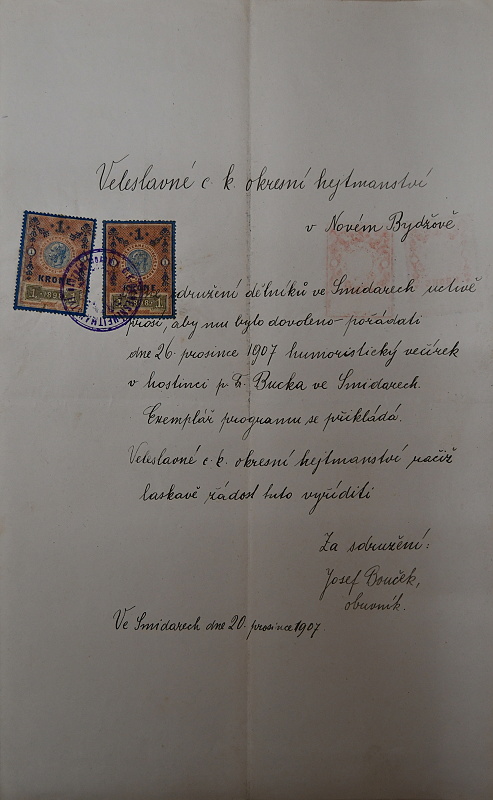 Veleslavné c. k. okresní hejtmanství
v Novém Bydžově.
1
1
KRONE
sdružení dělníků ve Smidarech uctivě
prosí, aby mu bylo dovoleno pořádati
dne 26. prosince 1907 humoristický večírek
v hostinci p. F. Bucka ve Smidarech.
Exemplář programu se přikládá.
Veleslavné c. k. okresní hejtmanství račiž
laskavě žádost tuto vyříditi
Za sdružení:
Josef Bouček,
obuvník.
Ve Smidarech dne 20. prosince 1907.